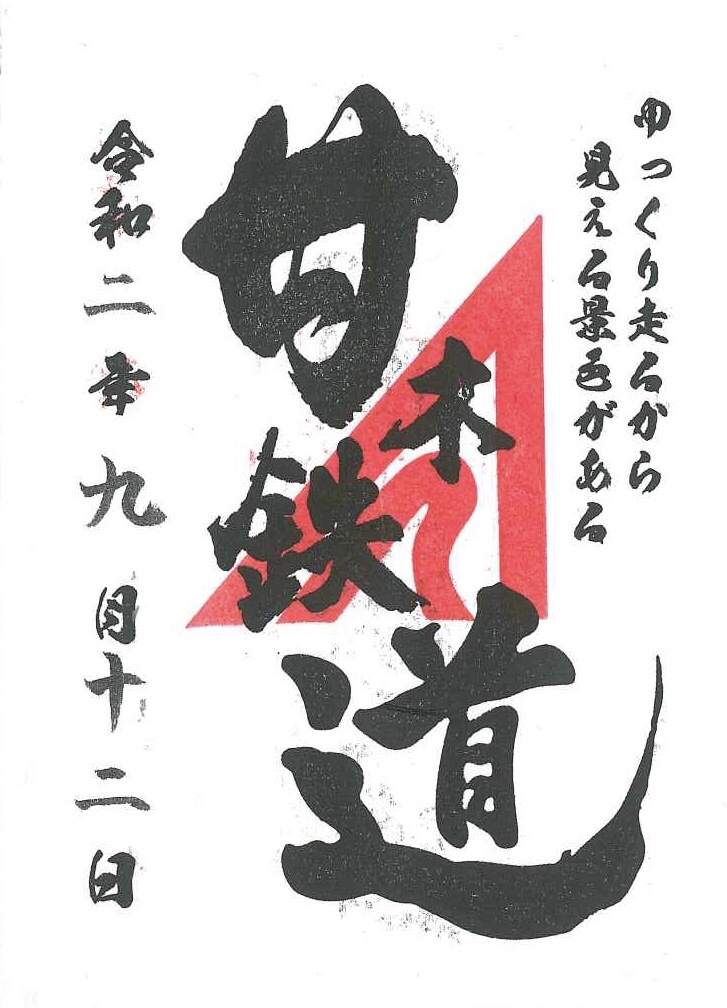 ゆっくり走るから
見える景色がある
甘木鉄道
令和二年九月十二日